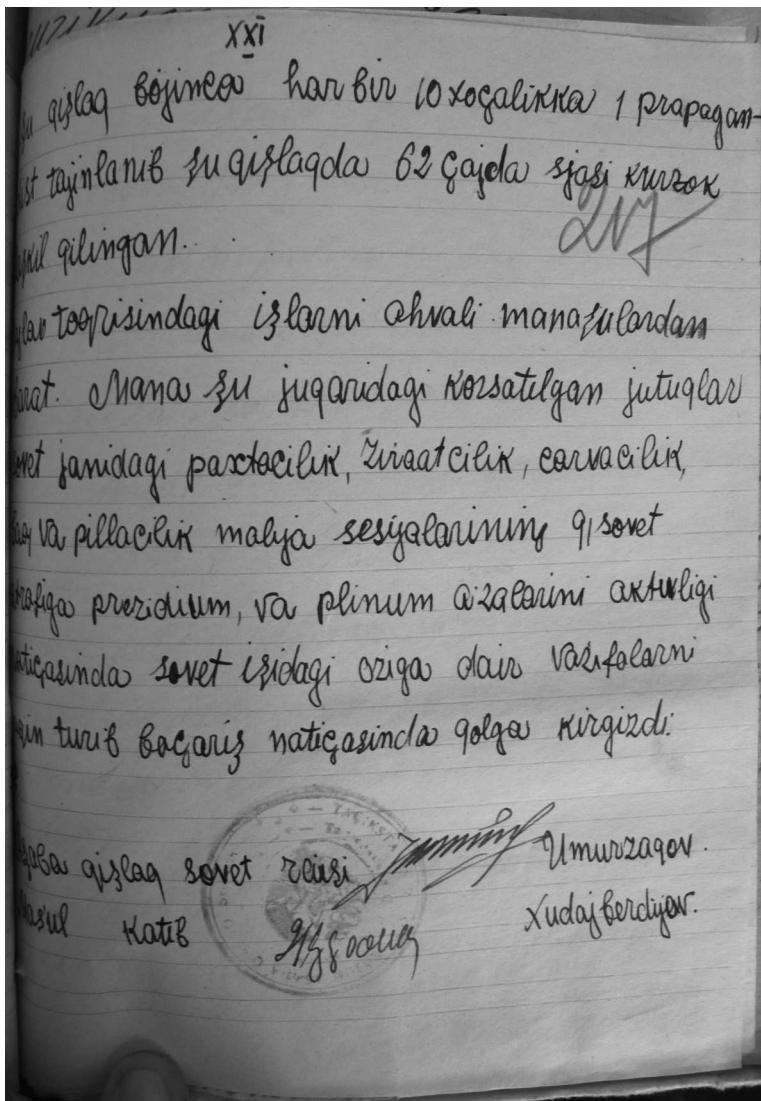 XXI
şu qişlaq bojinca har bir 10 xoçalikka 1 prapagan-
dist tajinlanıb şu qişlaqda 62 çajda sjasi kurzok
taşkil qilingan.
217
toqrisindagi işlarni ahvali manaşulardan
ibarat. Mana şu juqaridagi korsatilgan jutuqlar
sovet janidagi paxtacilik, ziraatcilik, carvacilik,
va pillacilik malija sesijalarining qişsovet
atrafiga prezidium, va plinum a'zalarini aktivligi
natiçasinda sovet işidagi oziga dair vazifalarni
turib baçariş natiçasinda qolga kirgizdi.
qişlaq sovet raisi Umurzaqov.
Mas'ul Katib Xudajberdijov.